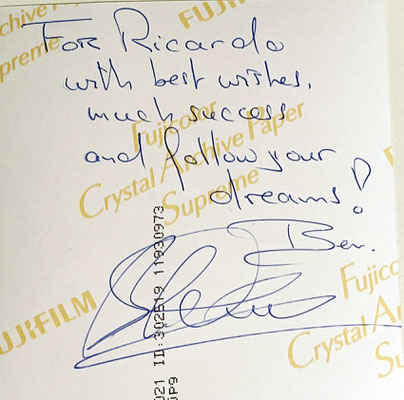 For Ricardo
with best wishes,
much success
and follow your
dreams!
Ben.
FUJIFILM
Fujicolor
Crystal Archive Paper
Supreme
chive Paper
preme
UJIFILM
Fujicolor
Crystal Arch
Su
021 ID:302519 11930973
JPG